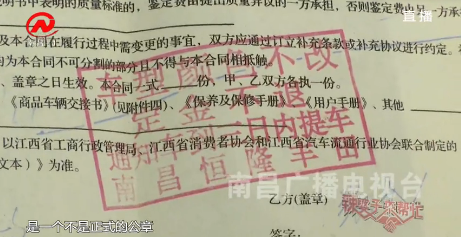 直播
明书中表明的质量标准的,鉴定费由提出质量异议的一方承担,否则鉴定费由另一方承
及本合同在履行过程中需变更的事宜,双方应通过订立补充条款或补充协议进行约定。
内为本合同不可分割的部分且不得与本合同相抵触。
、盖章之日生效。本合同一式 份,甲、乙双方各执一份。
《商品车辆交接书》(见附件四)、《保养及保修手册》、《用户手册》、其他
以江西省工商行政管理局、江西省消费者协会和江西省汽车流通行业协会联合制定的
文本)》为准。
车型颜色不改
定金不退
通知车到三日内提车
南昌恒隆丰田
南昌广播电视台
乙方(盖章)
签字:
是一个不是正式的公章